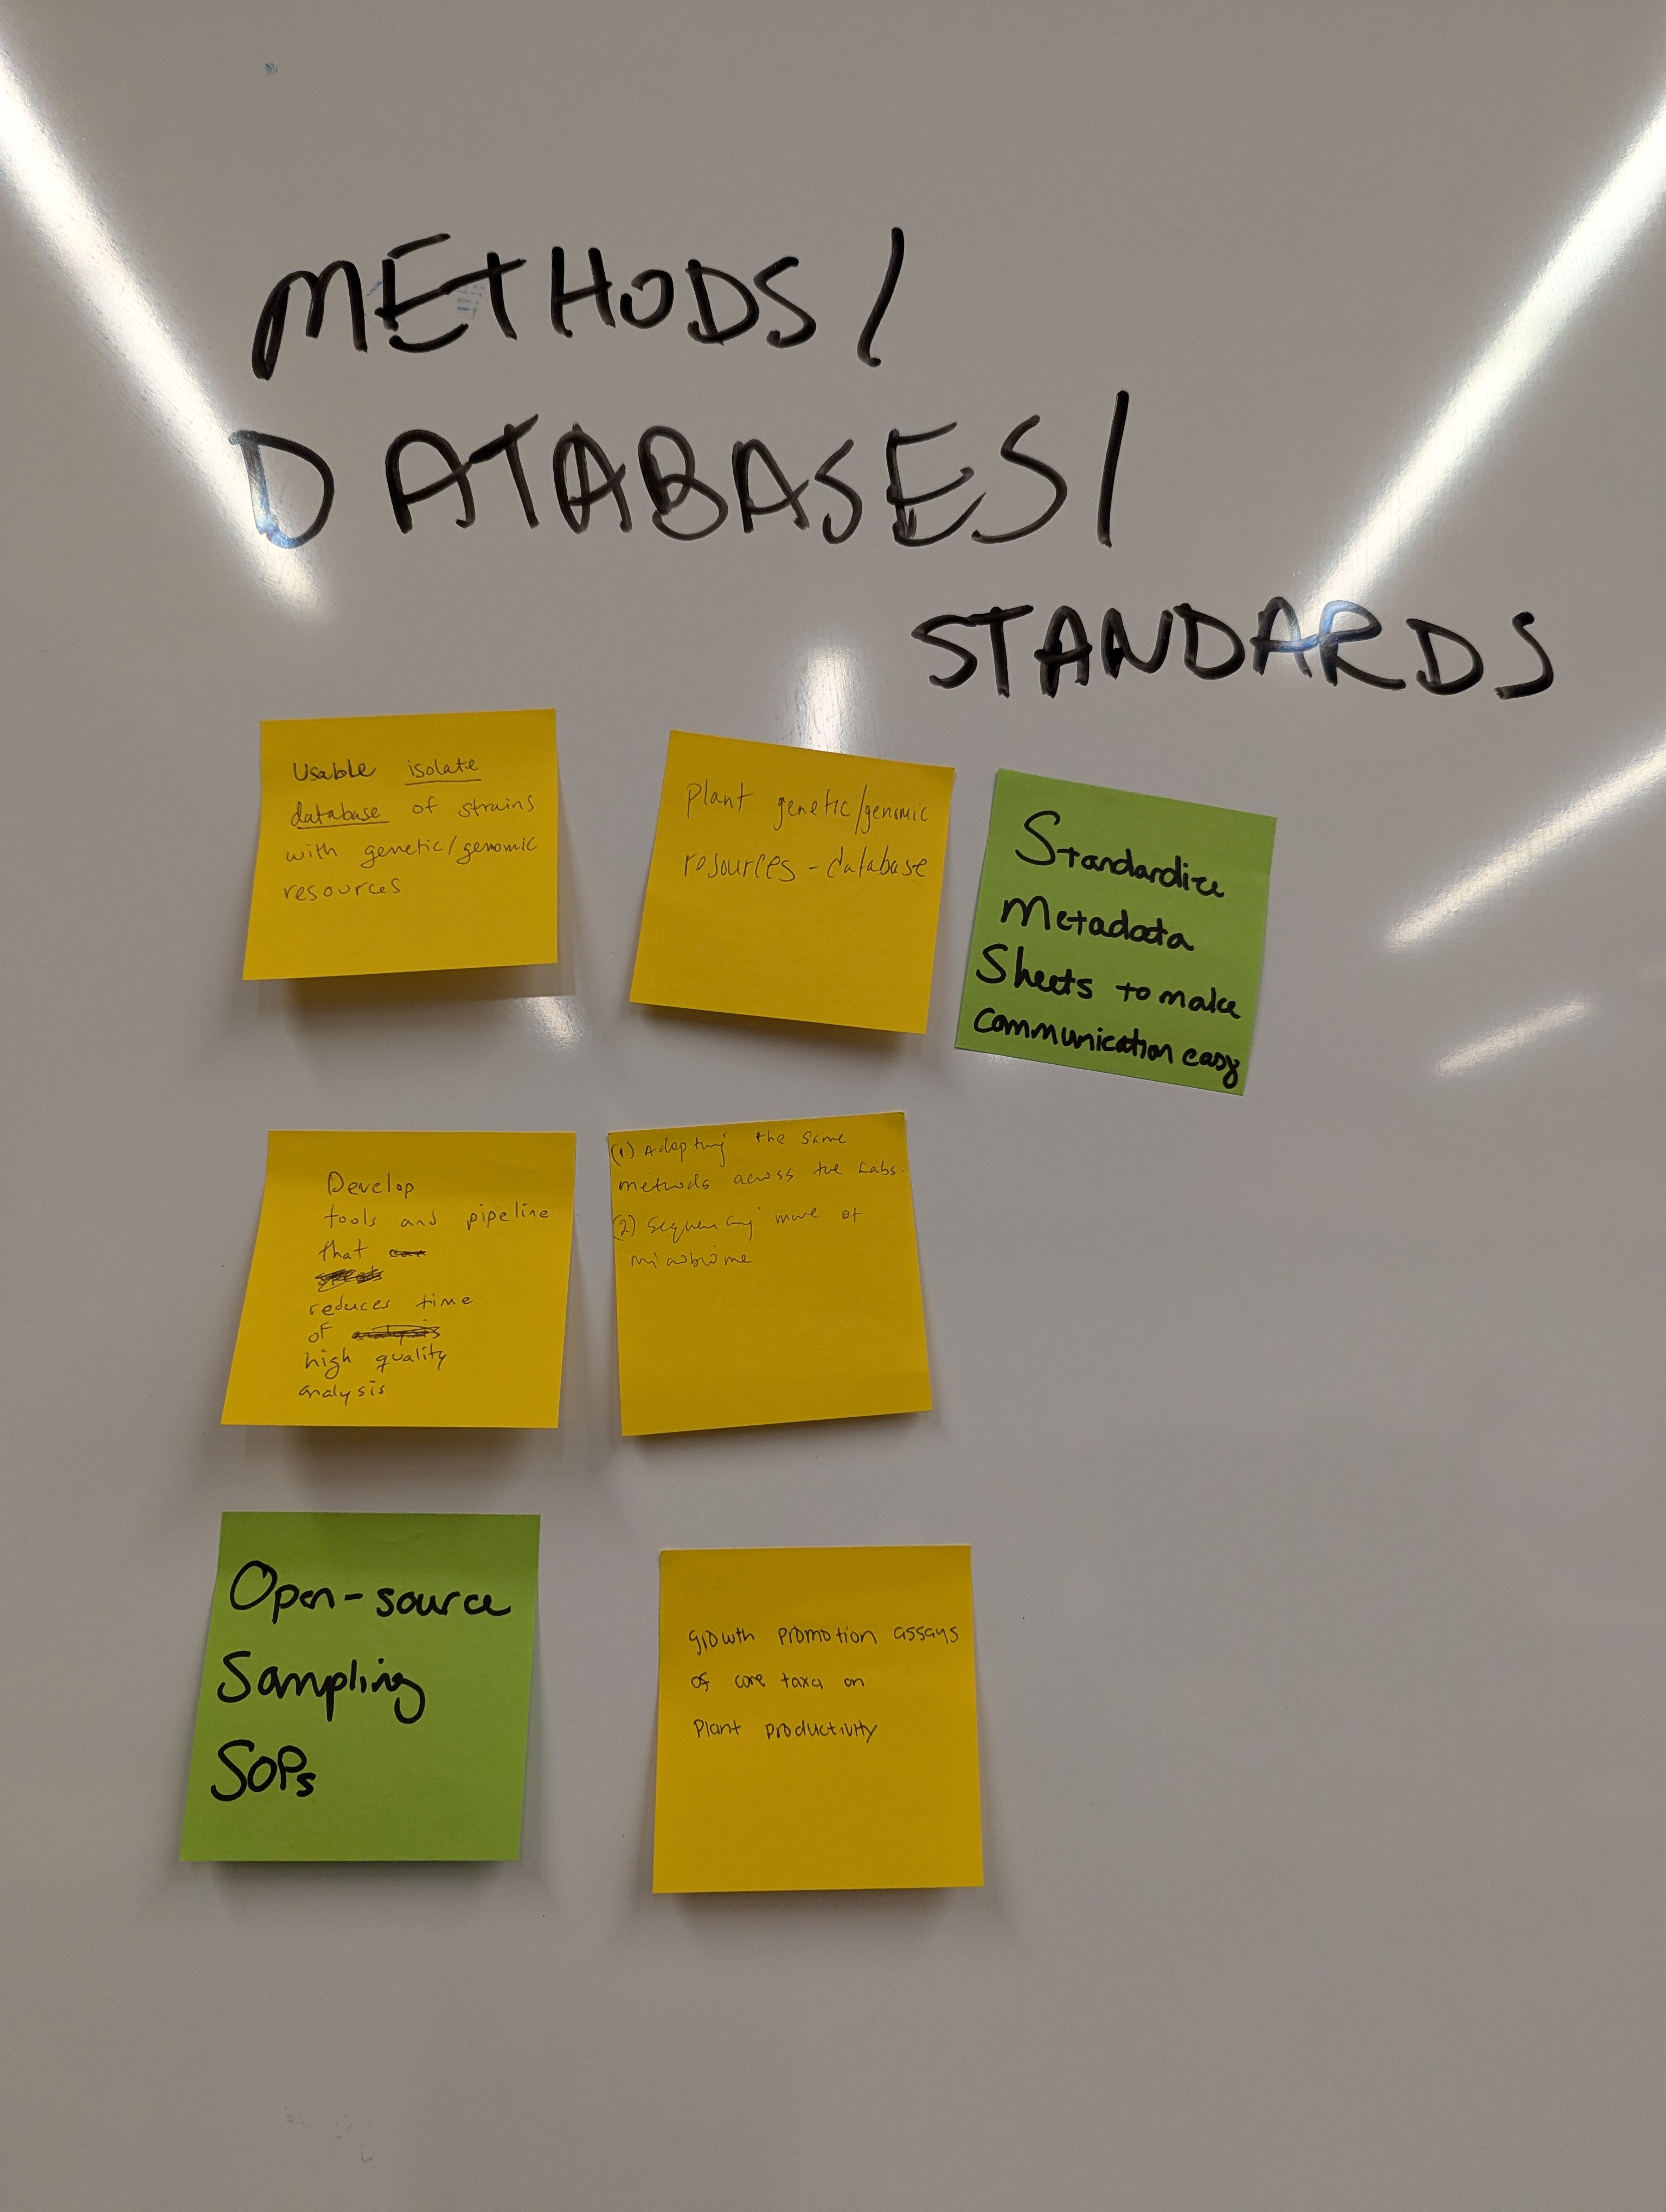 METHODS/
DATABASES/
STANDARDS
Usable isolate
database of strains
with genetic/genomic
resources
Plant genetic/genomic
resources - database
Standardize
Metadata
Sheets to make
Communication easy
Develop
tools and pipeline
that
reduces time
of
high quality
analysis
(1) Adopting the same
methods across the Labs.
(2) Sequencing more of
microbiome
Open-source
Sampling
SOPs
Growth promotion assays
of core taxa on
Plant productivity